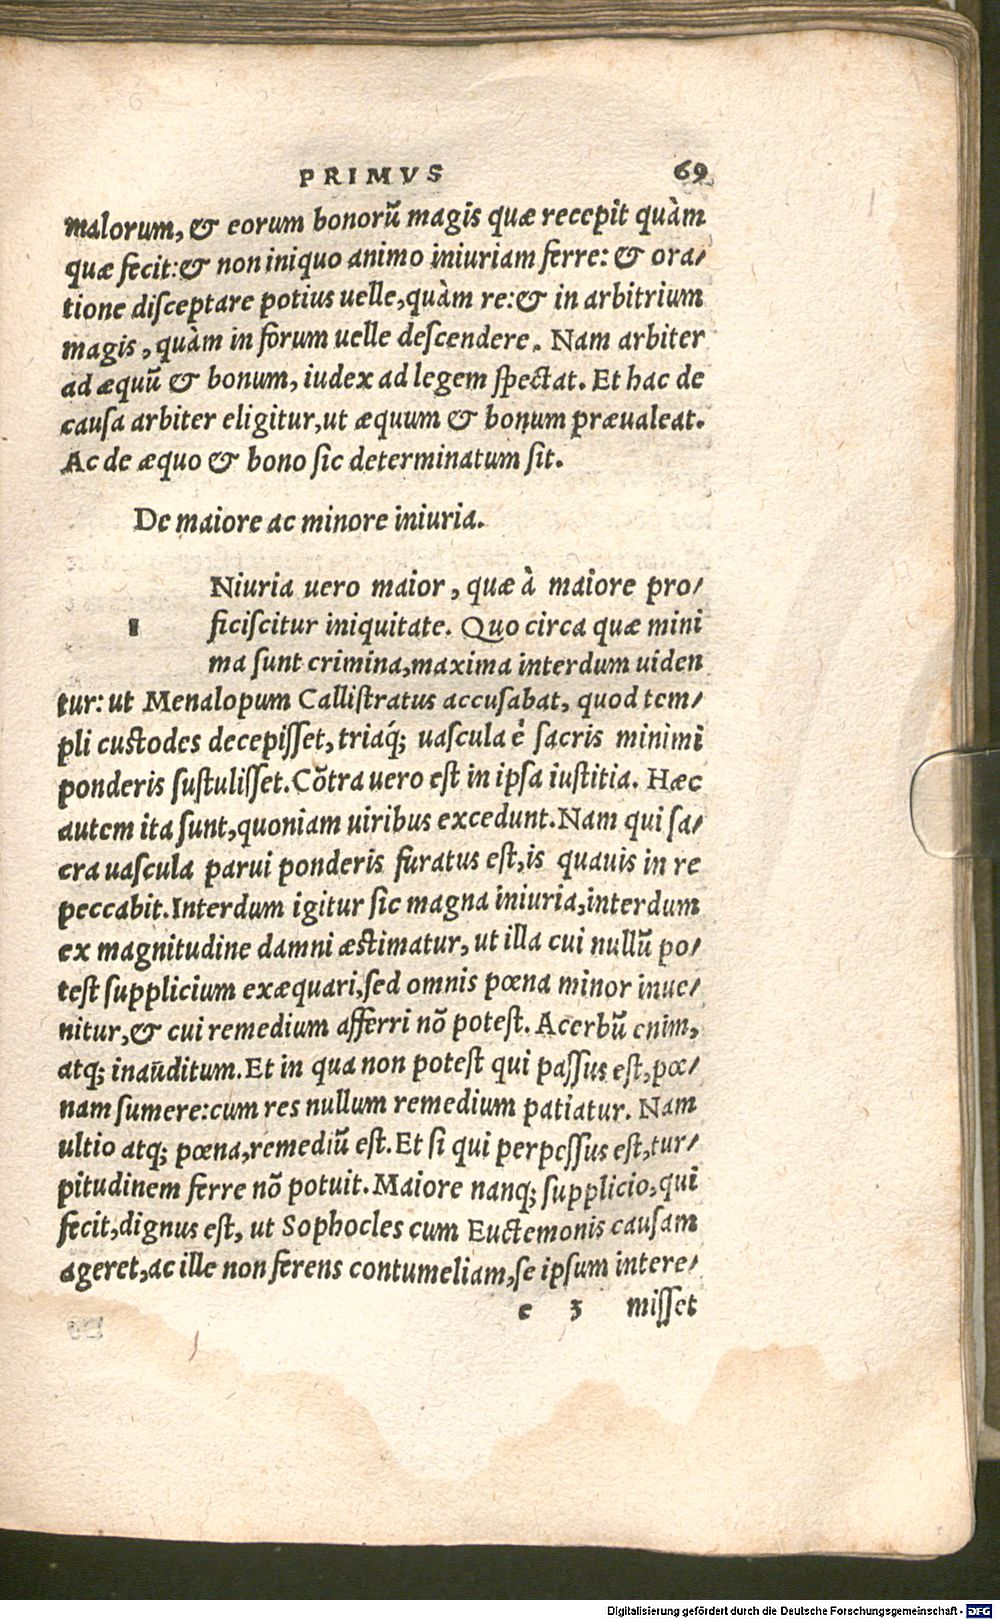 PRIMVS 69
malorum, & eorum bonorũ magis quæ recepit quàm
quæ fecit: & non iniquo animo iniuriam ferre: & ora/
tione disceptare potius uelle, quàm re: & in arbitrium
magis, quàm in forum uelle descendere. Nam arbiter
ad æquũ & bonum, iudex ad legem spectat. Et hac de
causa arbiter eligitur, ut æquum & bonum præualeat.
Ac de æquo & bono sic determinatum sit.
De maiore ac minore iniuria.
Niuria uero maior, quæ à maiore pro/
I ficiscitur iniquitate. Quo circa quæ mini
ma sunt crimina, maxima interdum uiden
tur: ut Menalopum Callistratus accusabat, quod tem/
pli custodes decepisset, triaq́; uascula è sacris minimi
ponderis sustulisset. Cõtra uero est in ipsa iustitia. Hæc
autem ita sunt, quoniam uiribus excedunt. Nam qui sa/
cra uascula parui ponderis furatus est, is quauis in re
peccabit. Interdum igitur sic magna iniuria, interdum
ex magnitudine damni æstimatur, ut illa cui nullũ po/
test supplicium exæquari, sed omnis pœna minor inue/
nitur, & cui remedium afferri nõ potest. Acerbũ enim,
atq; inaũditum. Et in qua non potest qui passus est, pœ/
nam sumere: cum res nullum remedium patiatur. Nam
ultio atq; pœna, remediũ est. Et si qui perpessus est, tur/
pitudinem ferre nõ potuit. Maiore nanq; supplicio, qui
fecit, dignus est, ut Sophocles cum Euctemonis causam
ageret, ac ille non ferens contumeliam, se ipsum intere/
e 3 misset
Digitalisierung gefördert durch die Deutsche Forschungsgemeinschaft - DFG